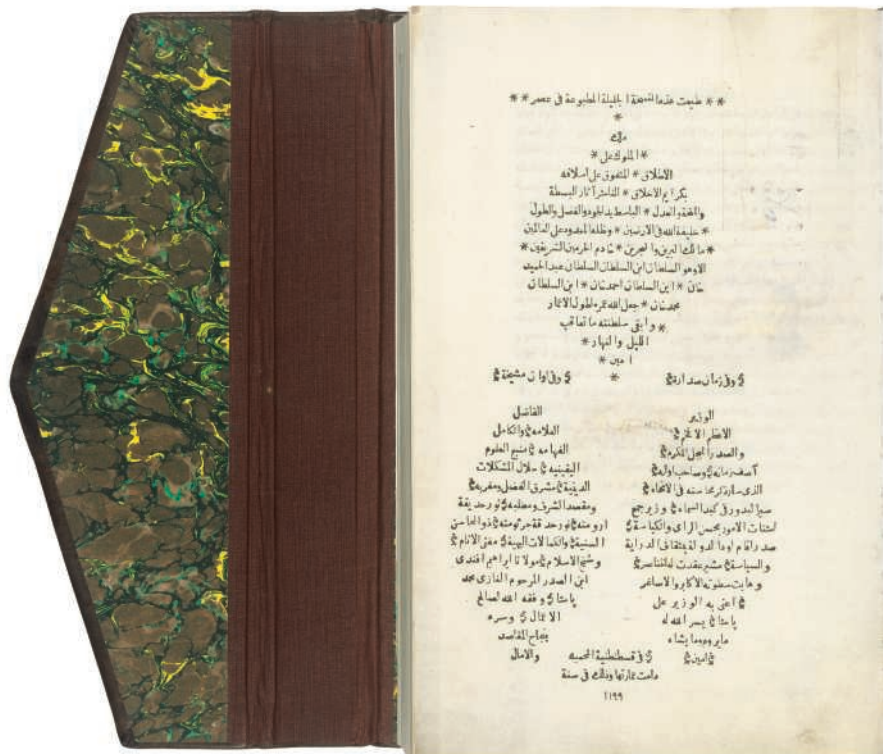 ** طبعت هذه النسخة الجليلة المطبوعة فى عصر **
*
ملك
* الملوك على *
الاطلاق * المتفوق على اسلافه
بكرايم الاخلاق * الناشر آثار البسطة
والفتح والعدل * الباسط يد الجود والفضل والطول
* خليفة الله فى الارضين * وظله الممدود على العالمين
* مالك البرين والبحرين * خادم الحرمين الشريفين *
الا وهو السلطان ابن السلطان السلطان عبد الحميد
خان * ابن السلطان احمد خان * ابن السلطان
محمد خان * جعل الله عمره اطول الاعمار
* وابقى سلطنته ما تعاقب
الليل والنهار *
امين *
وفى زمان صدارة * وفى اوان مشيخة
الوزير
الاعظم الافخم
والصدر المبجل المكرم
آصف زمانه وصاحب اوانه
الذى سار ذكر محاسنه فى الانحاء
سير البدور فى كبد السماء وزير جمع
اشتات الامور بحسن الراى والكياسة
صدر اقام اود الدولة بثقاف الدراية
والسياسة مشير عقدت له الخناصر
وهابت سطوته الاكابر والاصاغر
اعنى به الوزير على
پاشا يسر الله له
ما يروم وما يشاء
امين
الفاضل
العلامه والكامل
الفهامه منبع العلوم
اليقينيه حلال المشكلات
الدينية مشرق الفضل ومغربه
ومقصد الشرف ومطلبه نور حديقة
ارومته نور حدقة جرثومته ذو المحاسن
السنية والكمالات البهية مفتى الانام
وشيخ الاسلام مولانا ابراهيم افندى
ابن الصدر المرحوم الغازى محمد
پاشا وفقه الله لصالح
الاعمال وسره
بنجاح المقاصد
والامال
فى قسطنطنية المحميه
دامت عمارتها وذلك فى سنة
١١٩٩